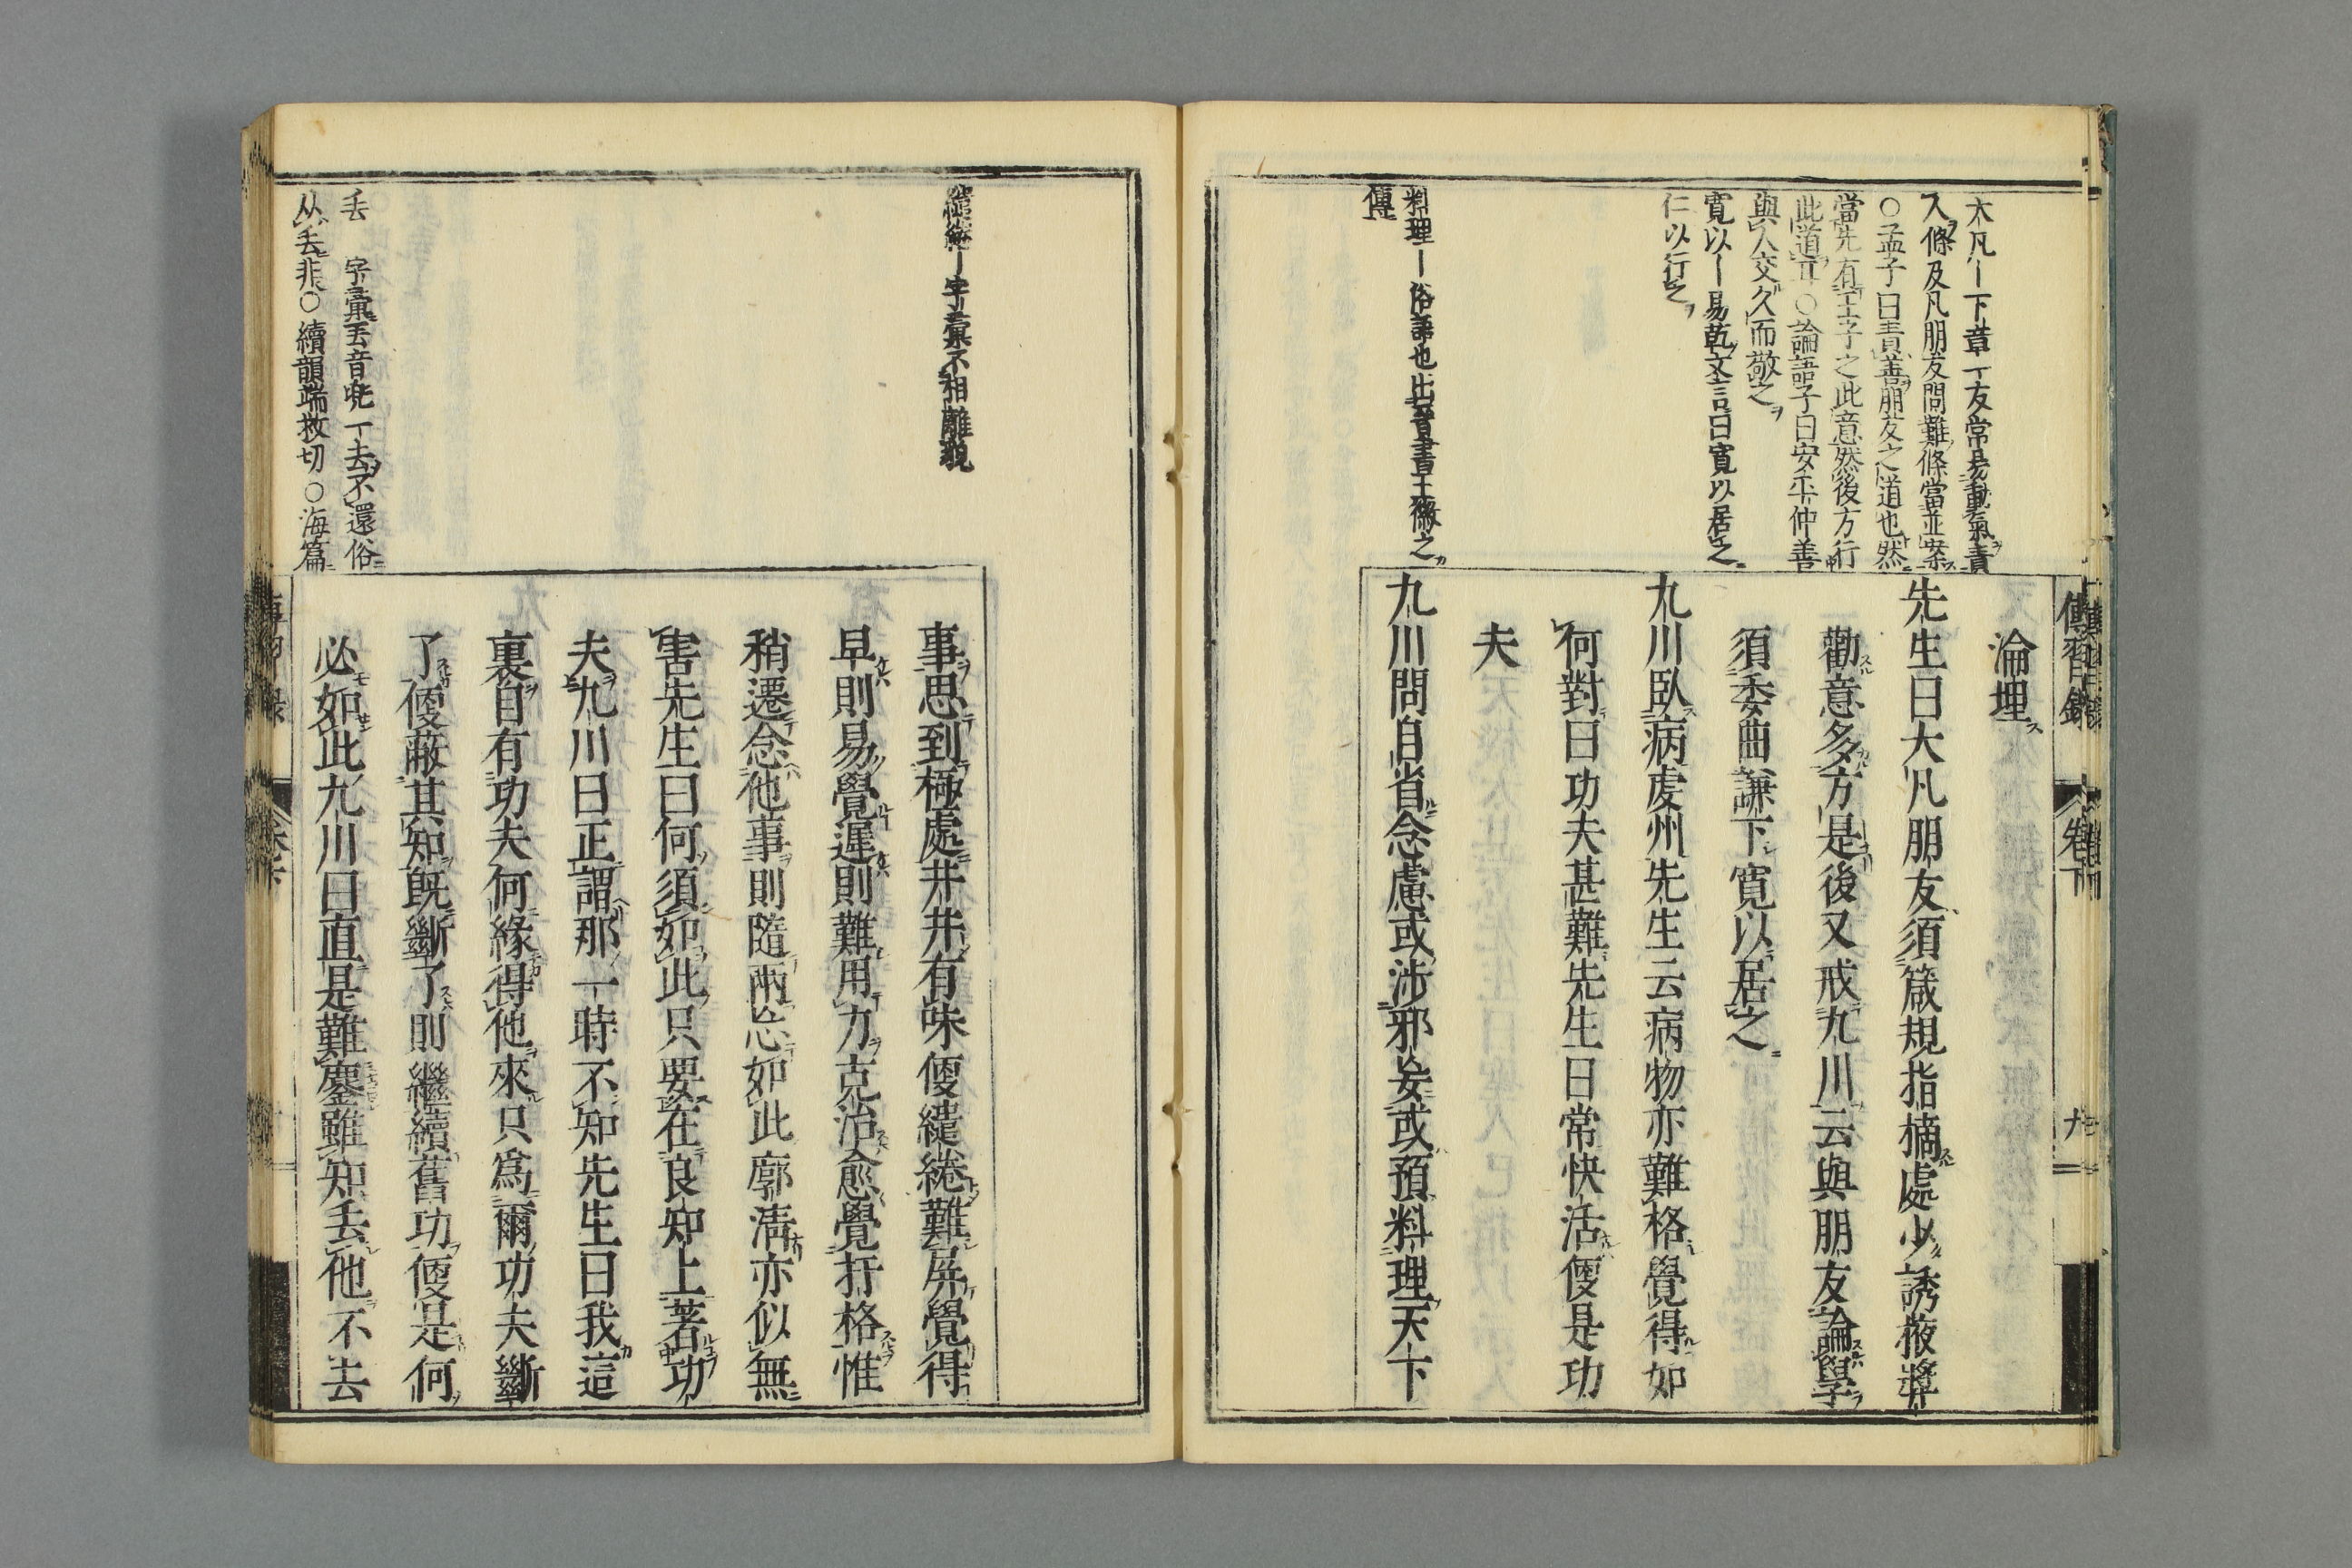 傳習錄
卷下
大凡｜下章一友常易動氣責
人條及凡朋友問難條當並案
○孟子曰責善朋友之道也然
當先有
此道耳○論語子曰安平仲善
與人交久而敬之
寬以｜易乾文言曰寬以居之
仁以行之
料理｜俗語也出晉書王徽之
傳
淪埋
先生曰大凡朋友須箴規指摘處少誘掖獎
勸意多方是後又戒九川云與朋友論學
須委曲謙下寬以居之
九川臥病虔州先生云病物亦難格覺得如
何對曰功夫甚難先生曰常快活便是功
夫
九川問自省念慮或涉邪妄或預料理天下
繾綣｜字彙不相離貌
丟 字彙丟音
从丢非○續韻端救切○海篇
事思到極處井井有味便繾綣難屏覺得
早則易覺遲則難用力克治愈覺扞格惟
稍遷念他事則隨兩忘如此廓淸亦似無
害先生曰何須如此只要在良知上著功
夫九川曰正謂那一時不知先生曰我這
裏自有功夫何緣得他來只爲爾功夫斷
了便蔽其知旣斷了則繼續舊功便是何
必如此九川曰直是難鏖雖知丟他不去